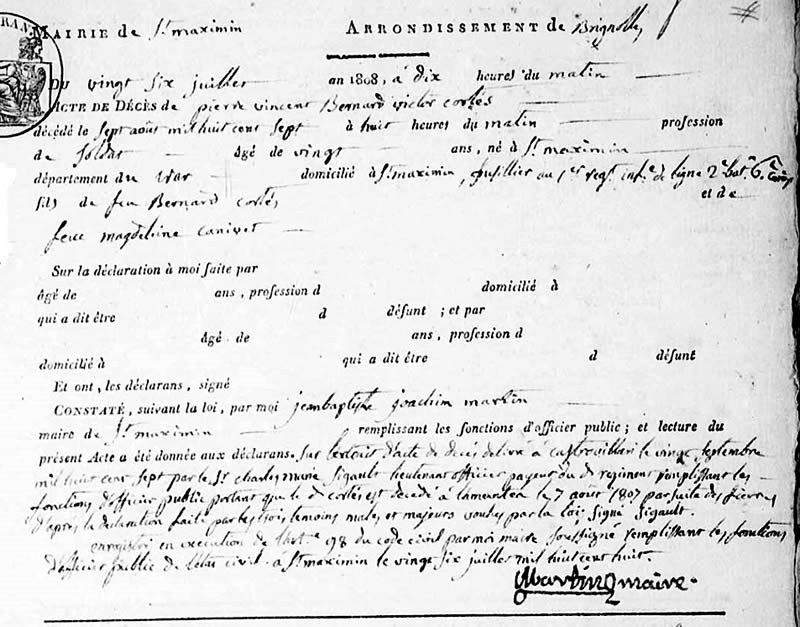 RAN
MAIRIE de St maximin ARRONDISSEMENT de Brignolles
DU vingt six juillet an 1808, à dix heures du matin
ACTE DE DÉCÈS de pierre vincent Bernard victor cortès
décédé le sept août mil huit cent sept à huit heures du matin profession
de soldat âgé de vingt ans, né à St maximin
département du var domicilié à St maximin, fusillier au 1er regt infie de ligne 2e baton 6e Compie
fils de feu Bernard cortès et de
feue magdeleine canivet
Sur la déclaration à moi faite par
âgé de ans, profession d domicilié à
qui a dit être d défunt ; et par
âgé de ans, profession d
domicilié à qui a dit être d défunt
Et ont, les déclarans, signé
CONSTATÉ, suivant la loi, par moi jean baptiste joachim martin
maire de St maximin remplissant les fonctions d'officier public ; et lecture du
présent Acte a été donnée aux déclarans. sur l'extrait d'acte de decès delivré à castrovillari le vingt septembre
mil huit cent sept par le Sr charles marie Sigault lieutenant officier payeur du d regiment remplissant les
fonctions d'officier public portant que le d cortès est decedé à lamentea le 7 août 1807 par suite des fievres
d'après la declaration faite par les trois temoins males et majeurs voulus par la loi, signé Sigault.
enregistré en execution de l'arte 98 du code civil par moi maire soussigné remplissant les fonctions
d'officier public de l'état civil. à St maximin le vingt six juillet mil huit cent huit.
Martin maire.